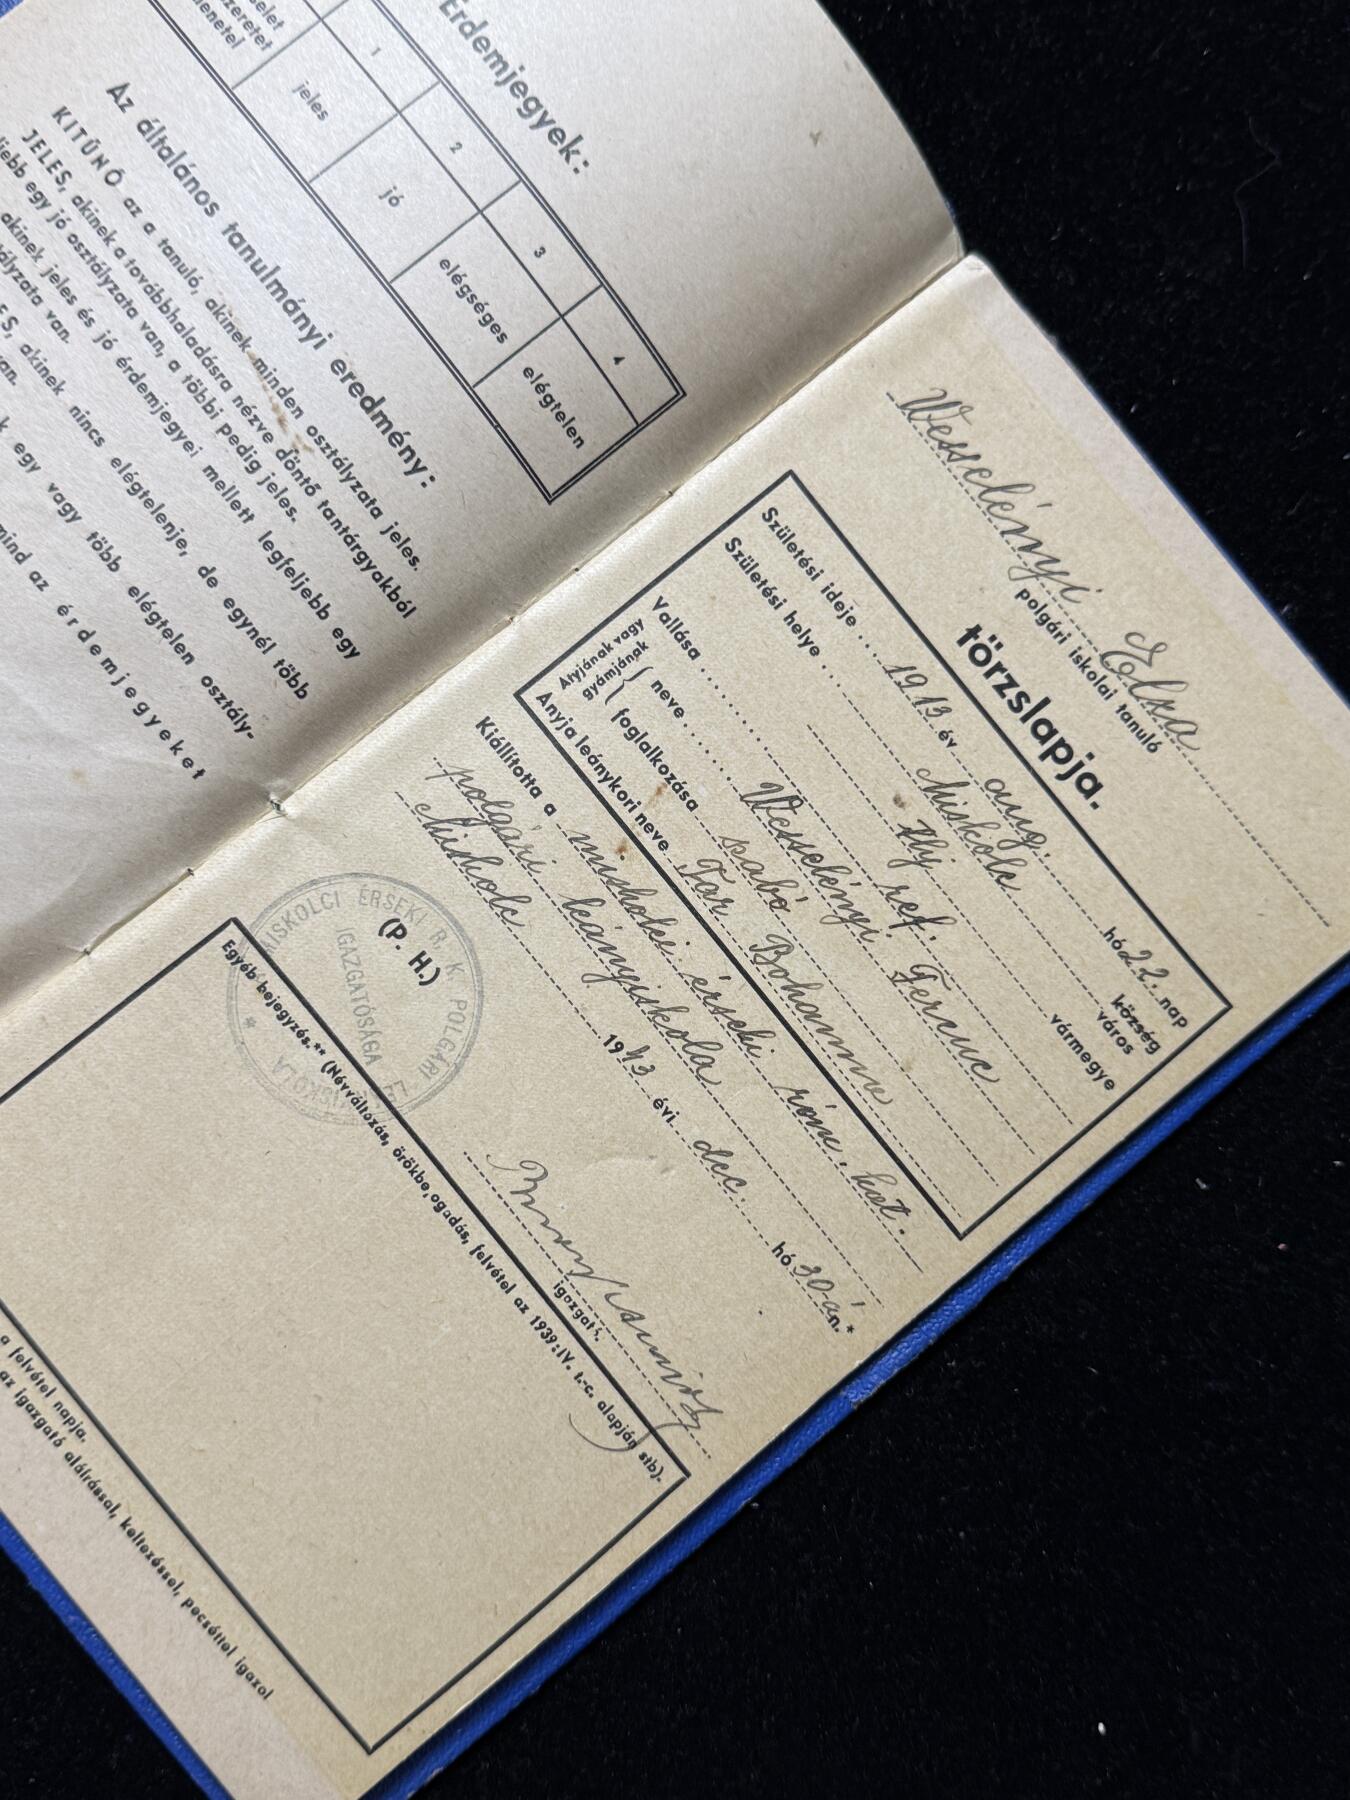 Érdemjegyek:
1 2 3 4
jeles jó elégséges elégtelen
Az általános tanulmányi eredmény:
KITÜNŐ az a tanuló, akinek minden osztályzata jeles.
JELES, akinek a továbbhaladásra nézve döntő tantárgyakból
egy jó osztályzata van, a többi pedig jeles.
akinek jeles és jó érdemjegyei mellett legfeljebb egy
van.
akinek nincs elégtelenje, de egynél több
van.
egy vagy több elégtelen osztály-
mind az érdemjegyeket
Wesselényi Elza
polgári iskolai tanuló
törzslapja.
Születési ideje 19 év aug. hó 22. nap
Születési helye Miskolc község
város
vármegye
Vallása ref.
Atyjának vagy gyámjának
neve Wesselényi Ferenc
foglalkozása szabó
Anyja leánykori neve Tar
Kiállította a miskolci érseki róm. kat.
polgári leányiskola
Miskolc 1943 évi dec. hó 30-án.*
(P. H.)
MISKOLCI ÉRSEKI R. K. POLGÁRI
IGAZGATÓSÁGA
igazgató.
Egyéb bejegyzés.** (Névváltozás, örökbefogadás, felvétel az 1939:IV. t.-c. alapján stb).
a felvétel napja.
az igazgató aláírással, keltezéssel, pecséttel igazol